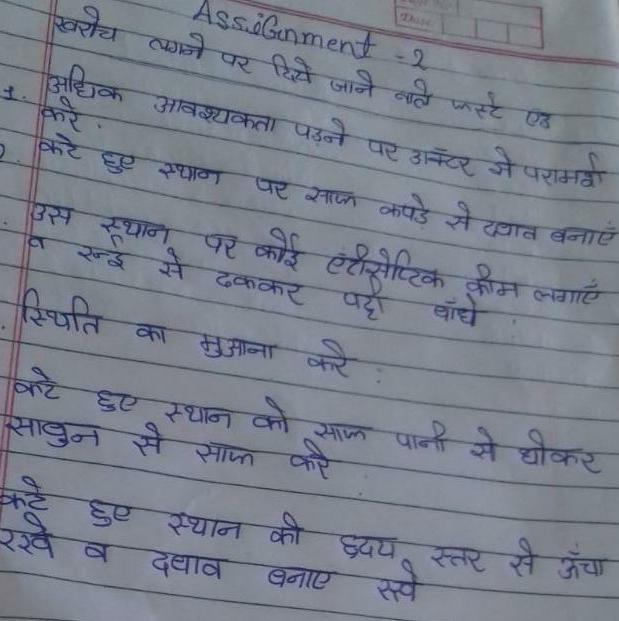 AssiGnment - 2
खरोच लगने पर दिये जाने वाले फर्स्ट एड
1. अधिक आवश्यकता पड़ने पर डाॅक्टर से परामर्श
करे.
कटे हुए स्थान पर साफ कपड़े से दबाव बनाएँ
उस स्थान पर कोई एंटीसेप्टिक क्रीम लगाएँ
व रुई से ढककर पट्टी बाँधे
स्थिति का मुआना करे
कटे हुए स्थान को साफ पानी से धोकर
साबुन से साफ करे
कटे हुए स्थान को ह्रदय स्तर से ऊँचा
रखे व दबाव बनाए रखे